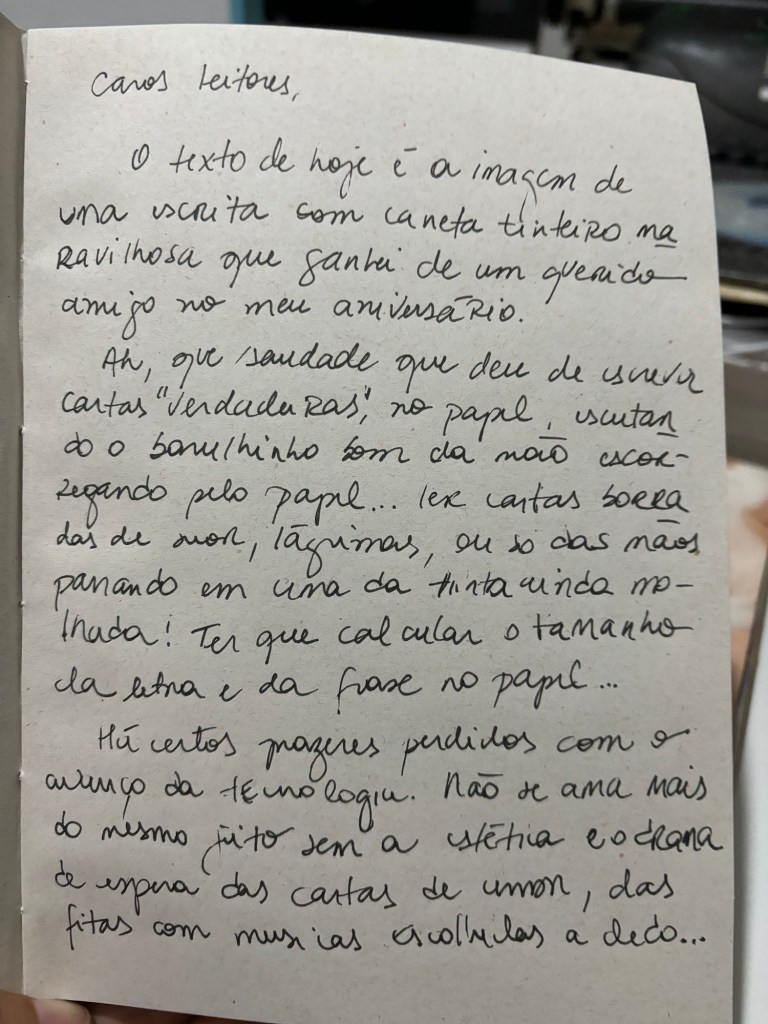 Caros leitores,
O texto de hoje é a imagem de
uma escrita com caneta tinteiro ma
ravilhosa que ganhei de um querido
amigo no meu aniversário.
Ah, que saudade que deu de escrever
cartas "verdadeiras", no papel, escutan
do o barulhinho bom da mão escor-
regando pelo papel... ler cartas borra
das de suor, lágrimas, ou só das mãos
parando em cima da tinta ainda mo-
lhada! Ter que calcular o tamanho
da letra e da frase no papel...
Há certos prazeres perdidos com o
avanço da tecnologia. Não se ama mais
do mesmo jeito sem a estética e o drama
de espera das cartas de amor, das
fitas com musicas escolhidas a dedo...